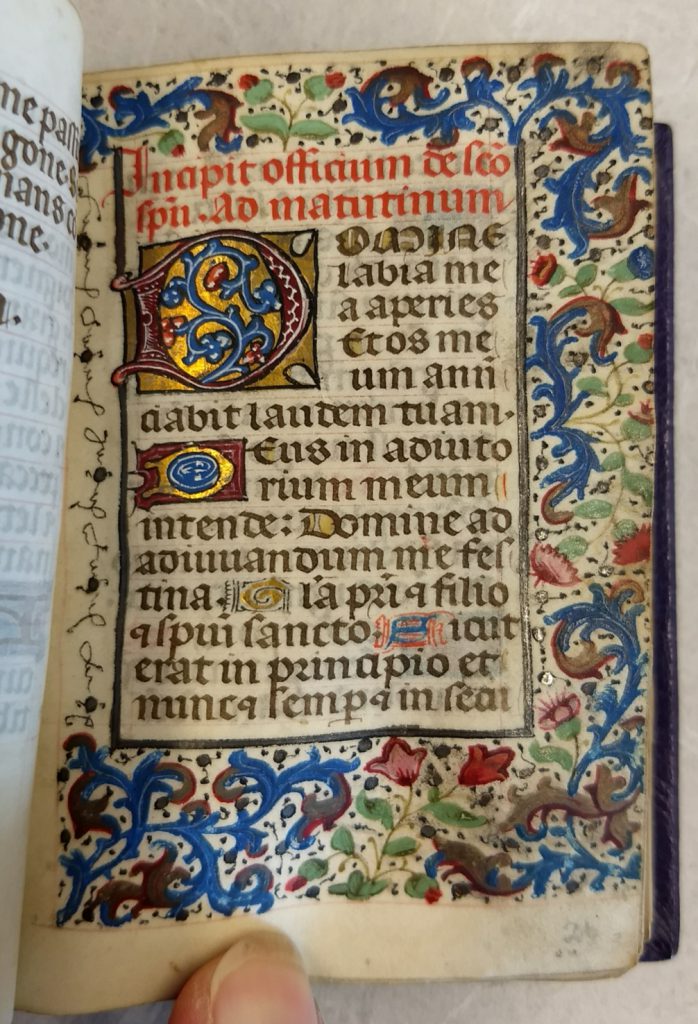 me pass
gone s
nans c
ne.
Incipit officium de sco
spu. Ad matutinum
DOMINE
labia me
a aperies
Et os me
um ann
ciabit laudem tuam.
Deus in adiuto
rium meum
intende: Domine ad
adiuuandum me fes
tina. Gla pri ⁊ filio
⁊ spui sancto. Sicut
erat in principio et
nunc ⁊ semp ⁊ in secu